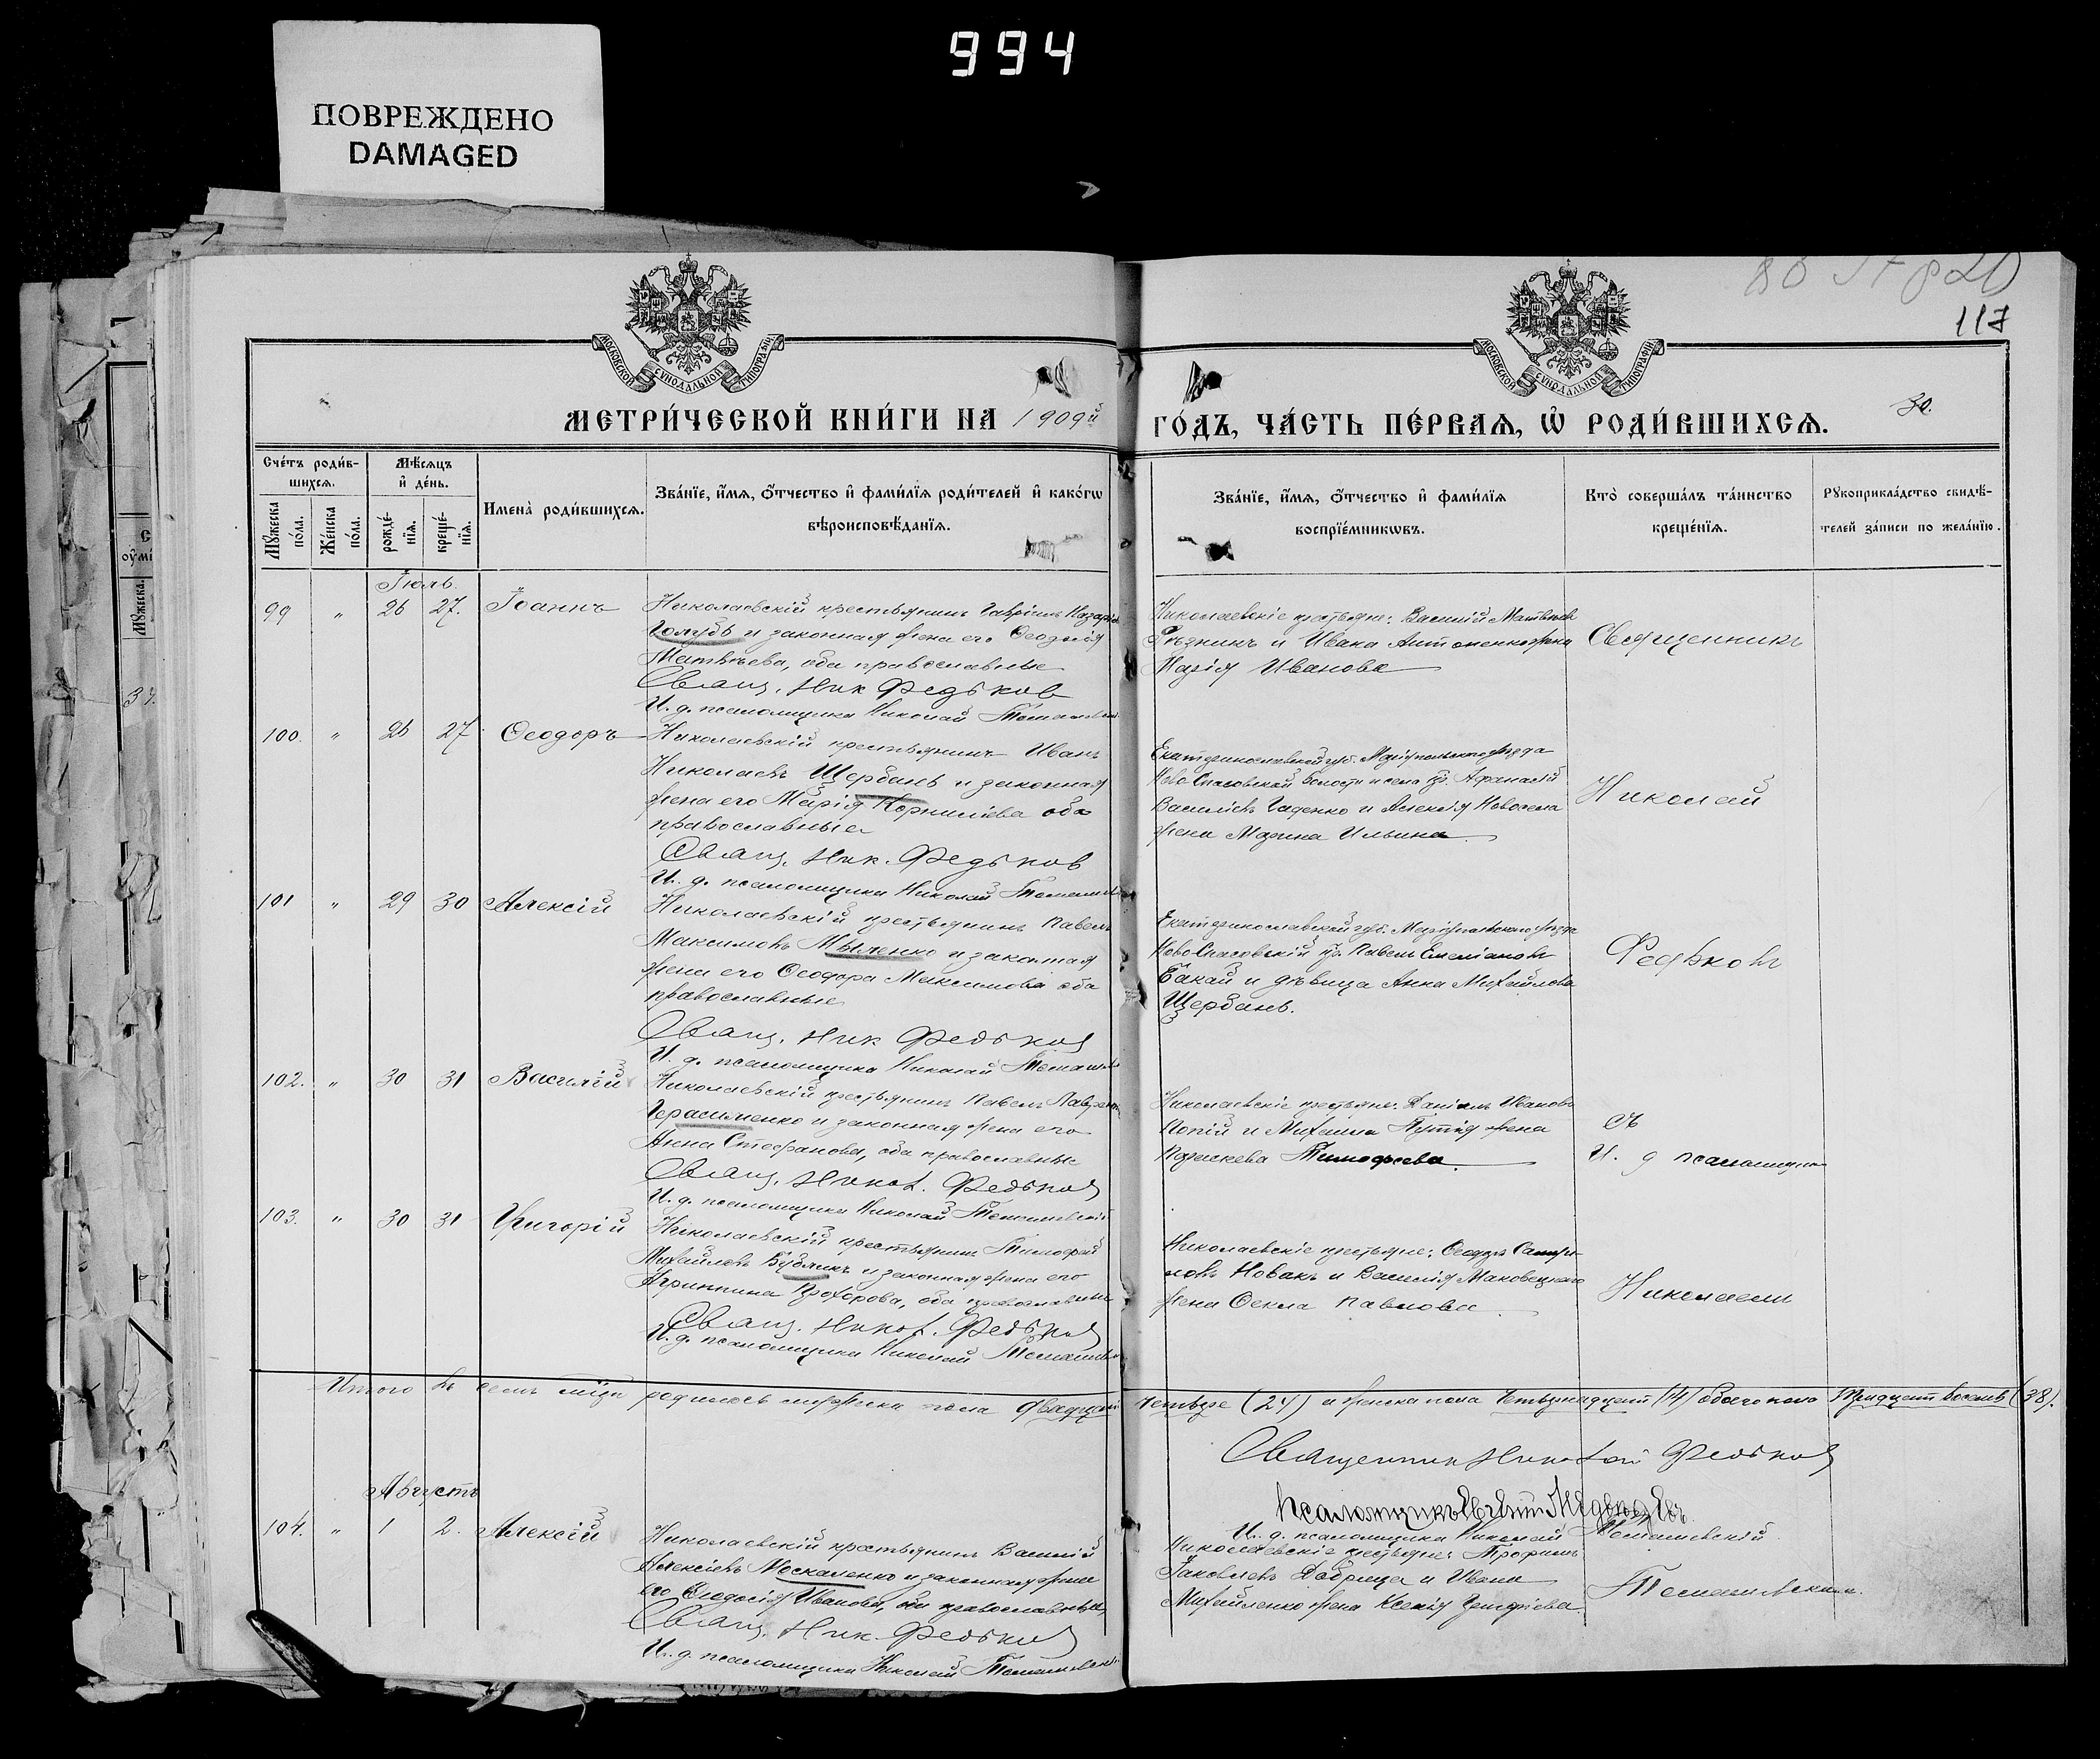 994
ПОВРЕЖДЕНО
DAMAGED
117
30.
МОСКОВСКОЙ СѴНОДАЛЬНОЙ ТИПОГРАФІИ
МОСКОВСКОЙ СѴНОДАЛЬНОЙ ТИПОГРАФІИ
МЕТРИ́ЧЕСКОЙ КНИ́ГИ НА 1909й
ГО́ДЪ, ЧА́СТЬ ПЕ́РВАѦ, Ѡ РОДИ́ВШИХСѦ.
Сче́тъ роди́в-
шихсѧ.
Мꙋ́жеска по́ла.
Же́нска по́ла.
Мѣ́сѧцъ
и҆ де́нь.
рожде́-нїѧ.
креще́-нїѧ.
И҆мена̀ роди́вшихсѧ.
Зва́нїе, и҆́мѧ, ѻ҆́тчество и҆ фами́лїѧ роди́телей и҆ како́гѡ
вѣроисповѣ́данїѧ.
Зва́нїе, и҆́мѧ, ѻ҆́тчество и҆ фами́лїѧ
воспрїе́мникѡвъ.
Кто̀ соверша́лъ та́инство
креще́нїѧ.
Рꙋкоприкла́дство свидѣ́-
телей за́писи по жела́нїю.
Іюль.
99 " 26 27. Іоаннъ
Николаевскій крестьянинъ Гавріилъ
Голубь и законная жена его Ѳеодосія
Матвѣева, оба православные
Свящ. Ник Федьков
И. д. псаломщика Николай
Николаевскіе крестьяне: Василій Матвѣевъ
Рѣзникъ и Ивана Антоненко жена
Марія Иванова
Священникъ
100. " 26 27 Ѳеодоръ
Николаевскій крестьянинъ Иванъ
Николаевъ Щербань и законная
жена его Марія Корниліева оба
православные
Свящ. Ник. Федьков
И. д. псаломщика Николай
Екатеринославской губ. Маріупольскаго уѣзда
Ново Спасовской волости и села кр. Аѳанасій
Василіевъ Гаденко и Алексѣя
жена Марина Ильина.
Николай
101 " 29 30 Алексій
Николаевскій крестьянинъ Павелъ
Максимовъ и законная
жена его Ѳеодора Максимова оба
православные
Свящ. Ник Федьков
И. д. псаломщика Николай
Екатеринославской губ. Маріупольскаго уѣзда
НовоСпасовскій кр. Павелъ Емеліановъ
Бакай и дѣвица Анна Михайлова
Щербань.
Федьковъ
102. " 30 31 Василій
Николаевскій крестьянинъ Павелъ
Герасименко и законная жена его
Анна Стефанова, оба православные
Свящ. Никол. Федьков
И. д. псаломщика Николай Томашевскій
Николаевскіе крестьяне: Даніилъ Ивановъ
и Михаила жена
Параскева Тимофеева.
съ
И. д псаломщика
103. " 30 31 Григорій
Николаевскій крестьянинъ Тимофей
Михайловъ Бубликъ и законная жена его
Агриппина Прохорова, оба православные
Свящ. Никол. Федьков
И. д. псаломщика Николай
Николаевскіе крестьяне: Ѳеодоръ
Новакъ и Василія Маковецкаго
жена Ѳекла Павлова.
Николаемъ
Итого въ семъ мцѣ родилось мужеска пола двадцать
четыре (24) и женска пола четырнадцать (14) обоего пола тридцать восемь (38).
Священник Николай Федьков
И. д. псаломщика Николай Томашевскій
Августъ
104. " 1 2. Алексій
Николаевскій крестьянинъ Василій
Алексіевъ Москаленко и законная жена
его Ѳеодосія Иванова, оба православные
Свящ. Ник. Федьков
И. д. псаломщика Николай Томашевск
Николаевскіе крестьяне: Трофимъ
Яковлевъ и Ивана
Михайленко жена Ксенія Григоріева.
Томашевскимъ.